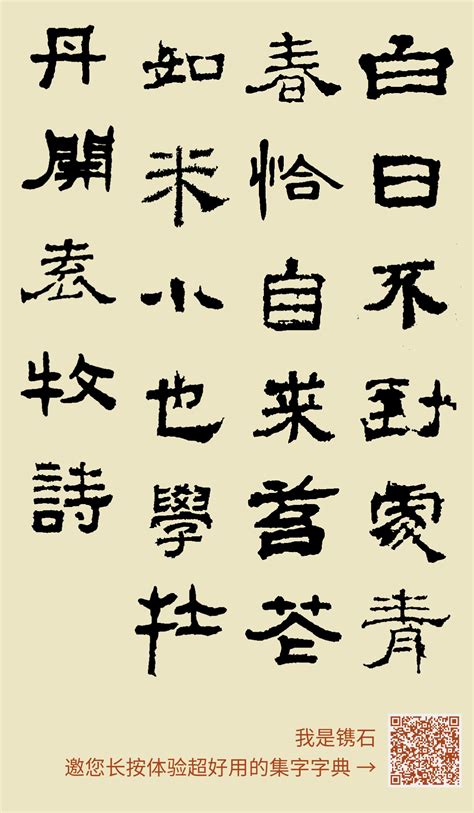 白日不到處青
春恰自來苔花
如米小也學牡
丹開袁牧詩
我是镌石
邀您长按体验超好用的集字字典 →